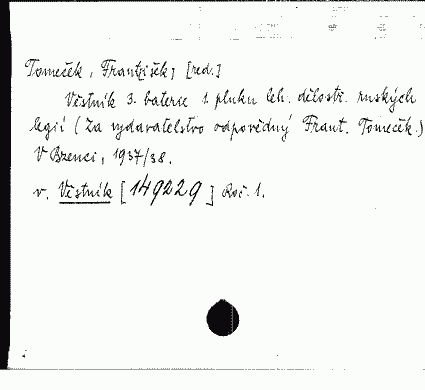 Tomeček, František, [red.]
Věstník 3. baterie 1. pluku leh. dělostř. ruských
legií (Za vydavatelstvo odpovědný Frant. Tomeček.)
V Bzenci, 1937/38.
v. Věstník [149229] Roč. 1.